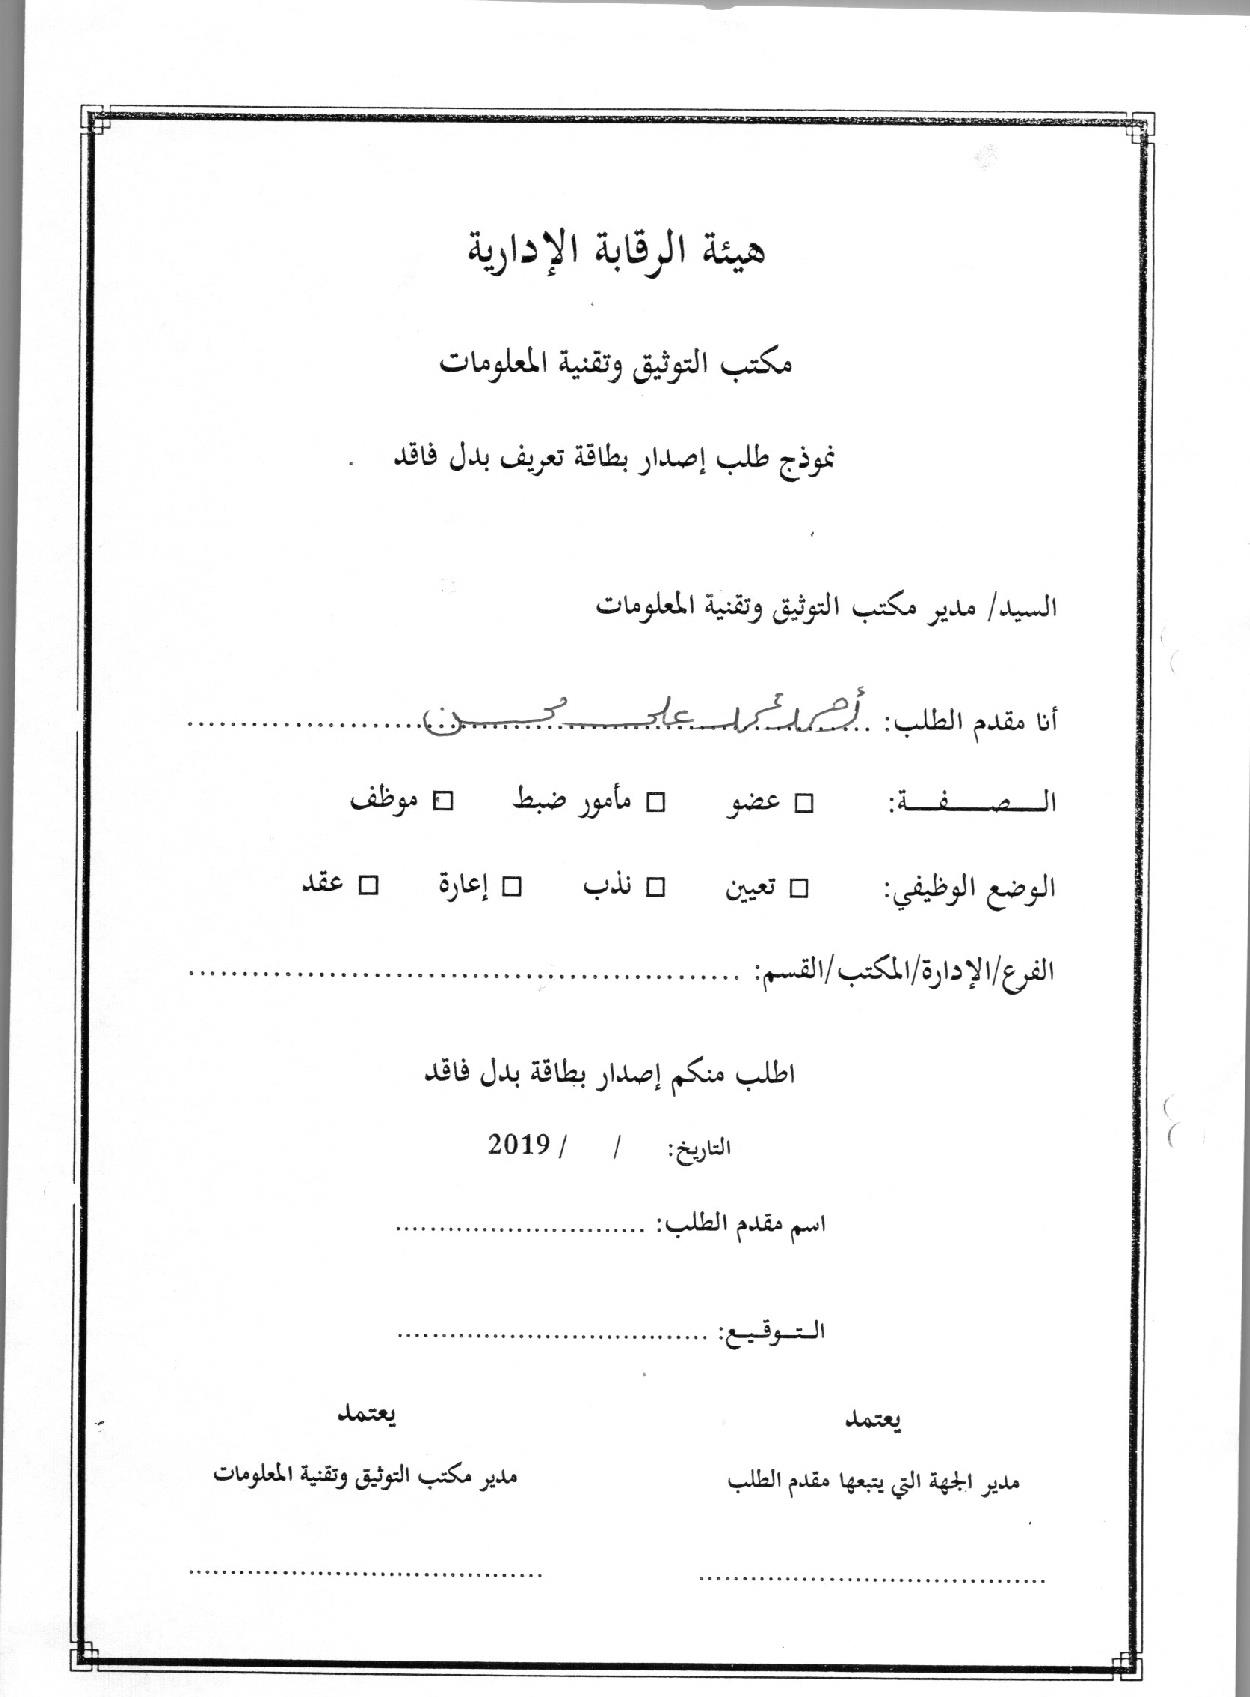 هيئة الرقابة الإدارية
مكتب التوثيق وتقنية المعلومات
نموذج طلب إصدار بطاقة تعريف بدل فاقد
السيد/ مدير مكتب التوثيق وتقنية المعلومات
أنا مقدم الطلب: علي محسن
الـــصـــفـــة: □ عضو □ مأمور ضبط □ موظف
الوضع الوظيفي: □ تعيين □ نذب □ إعارة □ عقد
الفرع/الإدارة/المكتب/القسم: ......................................................
اطلب منكم إصدار بطاقة بدل فاقد
التاريخ: / / 2019
اسم مقدم الطلب: .............................
التـوقـيـع: ...................................
يعتمد يعتمد
مدير الجهة التي يتبعها مقدم الطلب مدير مكتب التوثيق وتقنية المعلومات
........................................ ........................................